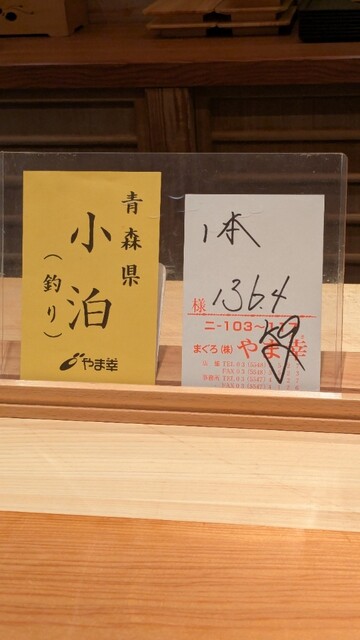 青森県
小泊
(釣り)
やま幸
1本
様 136.4
kg
ニ-103~
まぐろ(株)やま幸